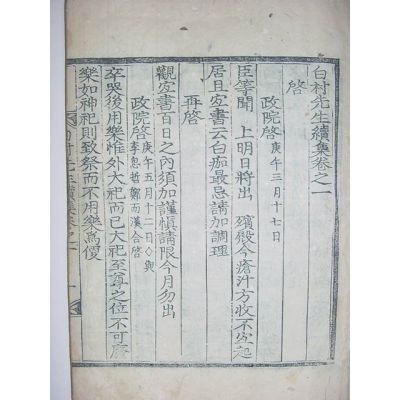 白村先生續集卷之一
啓
政院啓 庚午三月十七日
臣等聞 上明日將出 殯殿今瘡汁方收不宜起
居且宓書云白痂最忌請加調理
再啓
觀宓書百日之內須加謹愼請限今月勿出
政院啓 庚午五月十二日◇與李忠哲鄭而漢合啓
卒哭後用樂惟外大祀而已大祀至尊之位不可廢
樂如神祀則致祭而不用樂爲便
白村先生續集卷之一